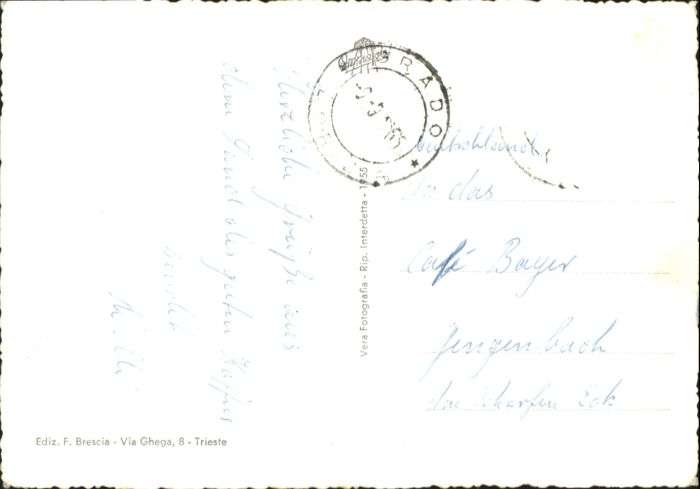 Herzliche Grüße aus
dem Land des guten
sendet
Willi
GRADO
Vera Fotografia - Rip. Interdetta - 1955
Deutschland
In das
Café Bayer
Gengenbach
Ediz. F. Brescia - Via Ghega, 8 - Trieste